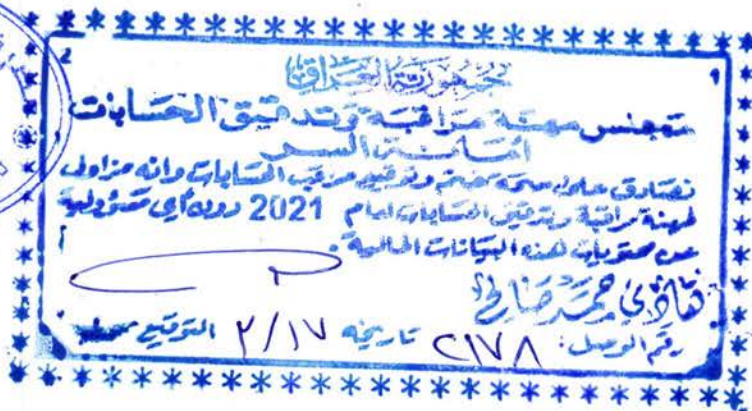 جمهورية العراق
مجلس مهنة مراقبة وتدقيق الحسابات
امانة السر
نصادق على صحة ختم وتوقيع مراقب الحسابات وانه مزاول
لمهنة مراقبة وتدقيق الحسابات لعام 2021 دون أي مسؤولية
عن محتويات هذه البيانات المالية.
رقم الوصل: ٢١٧٨ تاريخه ٢/١٧ التوقيع